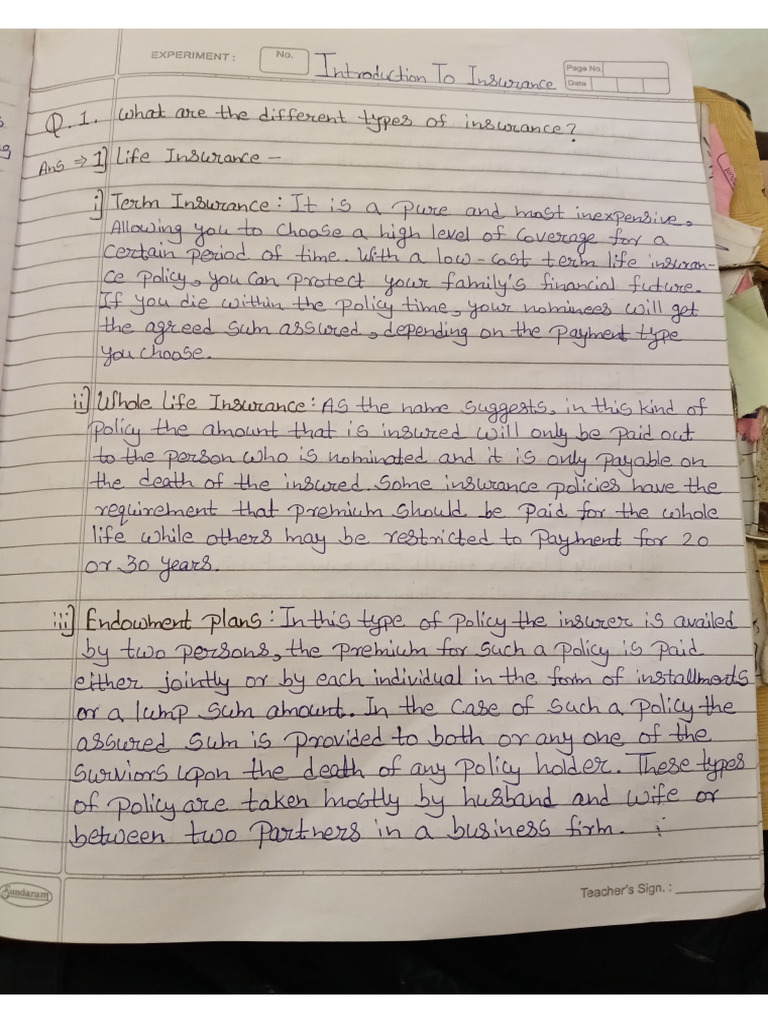 EXPERIMENT : No. Introduction To Insurance Page No. Date
Q.1. What are the different types of insurance?
Ans ⇒ 1] Life Insurance –
i] Term Insurance : It is a pure and most inexpensive,
Allowing you to choose a high level of coverage for a
certain period of time. With a low-cost term life insuran-
ce policy, you can protect your family's financial future.
If you die within the policy time, your nominees will get
the agreed sum assured, depending on the payment type
you choose.
ii] Whole Life Insurance : As the name suggests, in this kind of
policy the amount that is insured will only be paid out
to the person who is nominated and it is only payable on
the death of the insured. Some insurance policies have the
requirement that premium should be paid for the whole
life while others may be restricted to payment for 20
or 30 years.
iii] Endowment plans : In this type of policy the insurer is availed
by two persons, the premium for such a policy is paid
either jointly or by each individual in the form of installments
or a lump sum amount. In the case of such a policy the
assured sum is provided to both or any one of the
surviors upon the death of any policy holder. These types
of policy are taken mostly by husband and wife or
between two partners in a business firm.
Sundaram Teacher's Sign. :